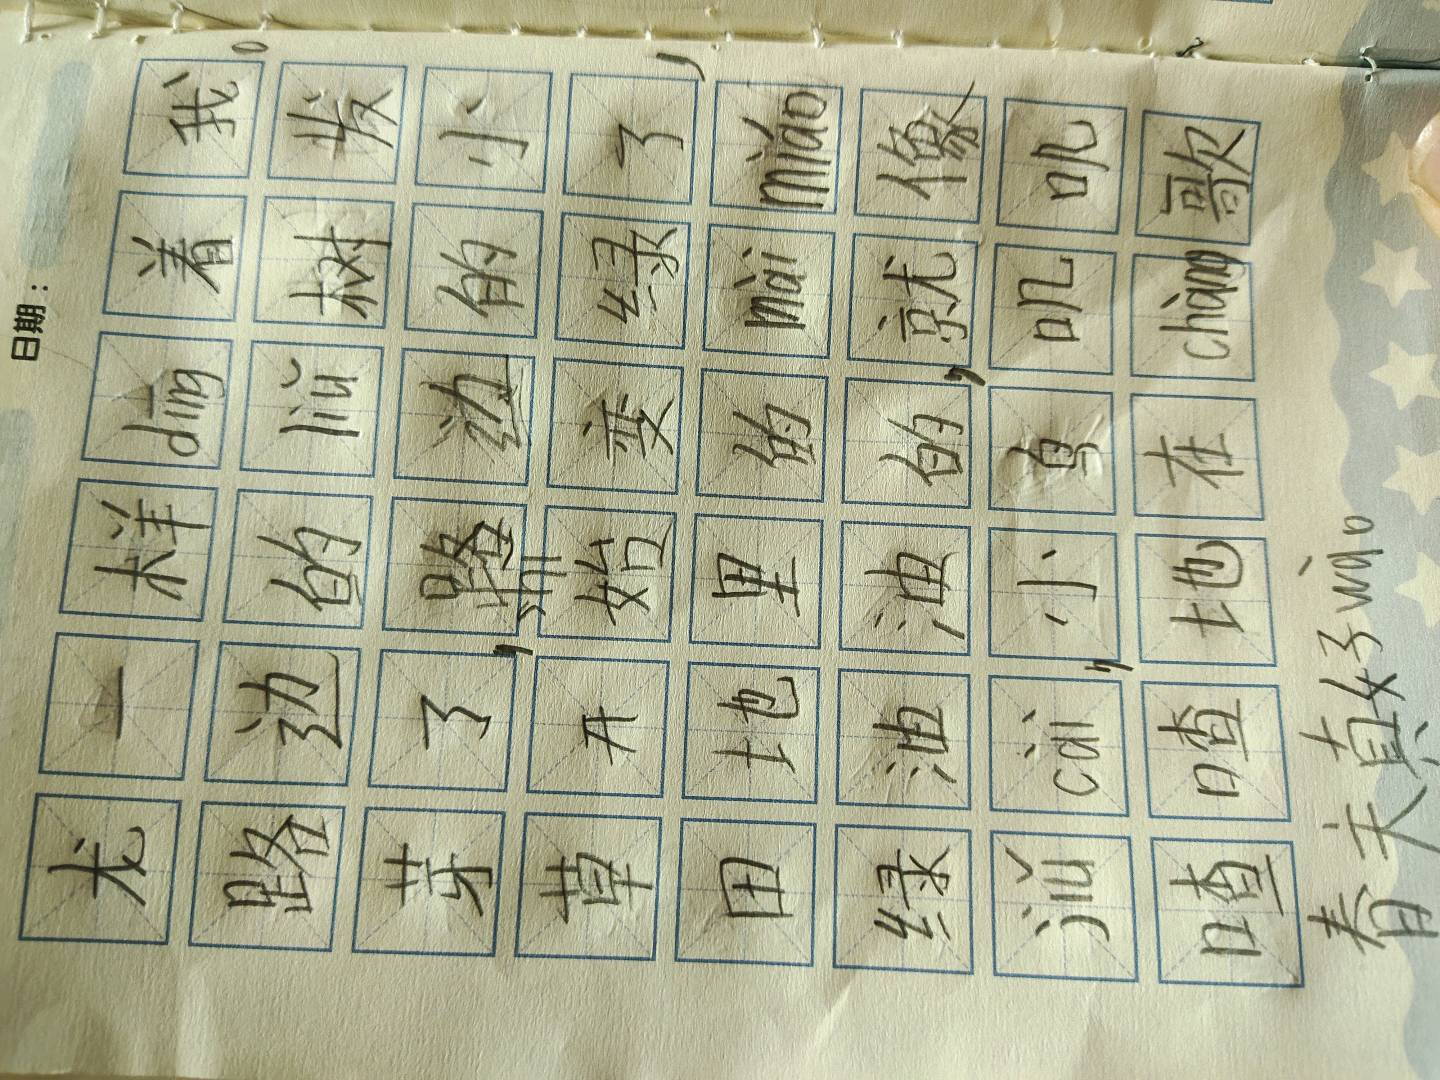 日期：
龙一样dīng着我。
路边的liǔ树发
芽了，路边的小
草开始变绿了，
田地里的mài miáo
绿油油的，就像
jiǔ cài，小鸟叽叽
喳喳地在chàng歌
春天真好